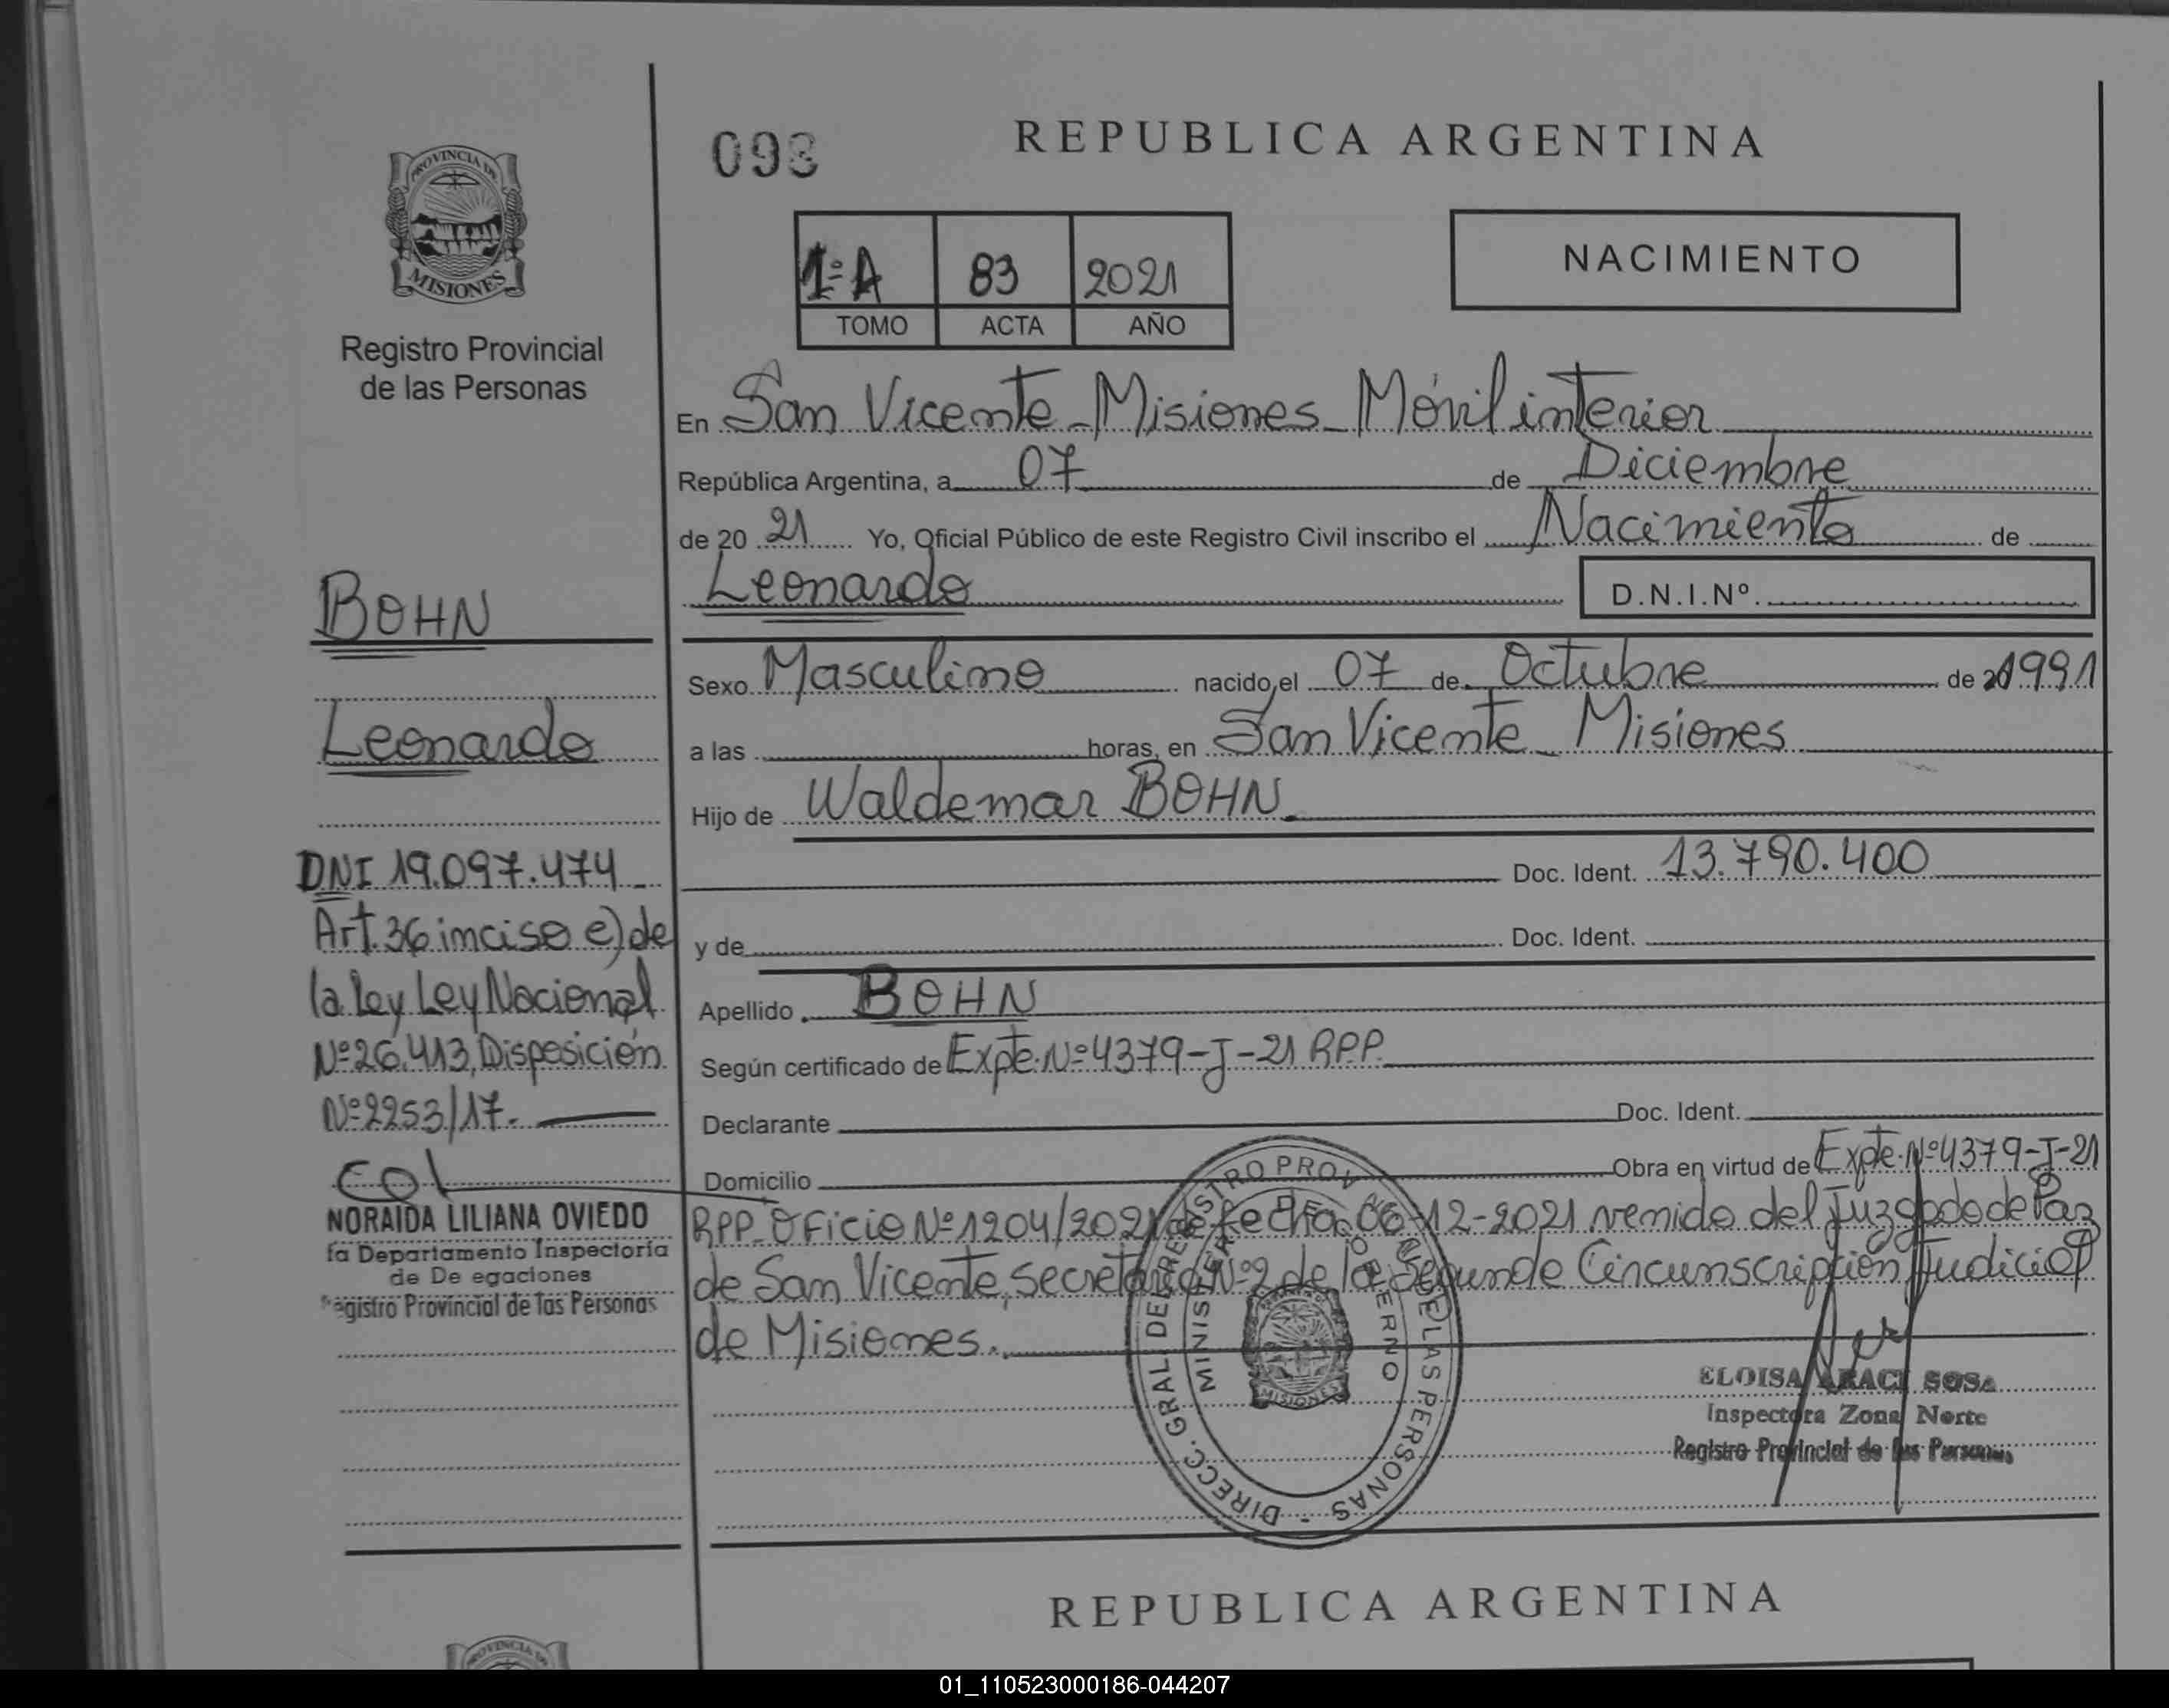 PROVINCIA DE
MISIONES
Registro Provincial
de las Personas
BOHN
Leonardo
DNI 19.097.474
Art. 36 inciso e) de
la Ley Ley Nacional
Nº 26.413, Disposición
Nº 2253/17.
NORAIDA LILIANA OVIEDO
fa Departamento Inspectoria
de De egaciones
Registro Provincial de las Personas
093
REPUBLICA ARGENTINA
1º A 83 2021
TOMO ACTA AÑO
NACIMIENTO
En San Vicente - Misiones - Móvil interior
República Argentina, a 07 de Diciembre
de 20 21 Yo, Oficial Público de este Registro Civil inscribo el Nacimiento de
Leonardo D.N.I.Nº.
Sexo Masculino nacido el 07 de Octubre de 1991
a las horas, en San Vicente - Misiones
Hijo de Waldemar BOHN
Doc. Ident. 13.790.400
y de Doc. Ident.
Apellido BOHN
Según certificado de Expte. Nº 4379-J-21 RPP.
Declarante Doc. Ident.
Domicilio Obra en virtud de Expte. Nº 4379-J-21
RPP. Oficio Nº 1204/2021 de fecha 06-12-2021 venido del Juzgado de Paz
de San Vicente, Secretaría Nº 2 de la Segunda Circunscripción Judicial
de Misiones.
DIRECC. GRAL. DE REGISTRO PROV. DE LAS PERSONAS -
MINISTERIO DE GOBIERNO
MISIONES
ELOISA ARACI SOSA
Inspectora Zona Norte
Registro Provincial de las Personas
REPUBLICA ARGENTINA
PROVINCIA DE
01_110523000186-044207